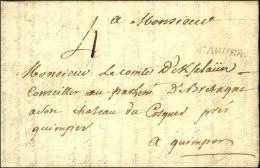 4
a Monsieur
Monsieur Le comte De
Conseiller au De Bretagne
a son chateau du Cosquer près
quimper
a quimper